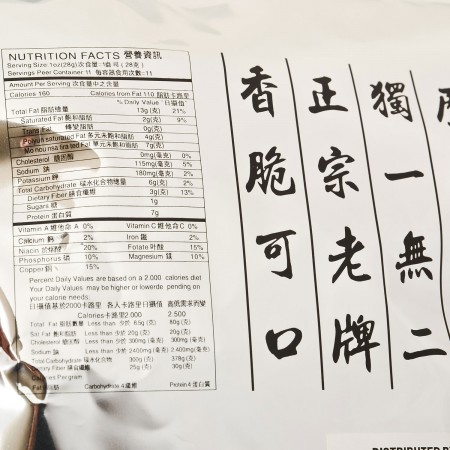 NUTRITION FACTS 營養資訊
Serving Size:1oz(28g)次食量:1盎司(28克)
Servings Peer Container 11 每容器食用次數:11
Amount Per Serving 次食量中之含量
Calories 160 Calories from Fat 110 脂肪卡路里
% Daily Value *日嚫值*
Total Fat 脂肪總量 13g(克) 21%
Saturated Fat 飽和脂肪 2g(克) 9%
Trans Fat 轉變脂肪 0g(克)
Polyun saturated Fat 多元未飽和脂肪 4g(克)
Mo nou nsa tira ted Fat 單元未飽和脂肪 7g(克)
Cholesterol 膽固醇 0mg(毫克) 0%
Sodium 鈉 115mg(毫克) 5%
Potassium 鉀 180mg(毫克) 2%
Total Carbohydrate 碳水化合物總量 6g(克) 2%
Dietary Fiber 膳食纖維 3g(克) 13%
Sugars 糖 1g
Protein 蛋白質 7g
Vitamin A 維他命 A 0% Vitamin C 維他命 C 0%
Calcium 鈣 2% Iron 鐵 2%
Niacin 菸鹼酸 20% Folate 叶酸 15%
Phosphorus 磷 10% Magnesium 鎂 10%
Copper 銅 15%
Percent Daily Values are based on a 2.000 calories diet
Your Daily Values may be higher or lowerde pending on
your calorie needs.
日嚫值基於2000卡路里 各人卡路里日嚫值 高低需求而變
Calories卡路里2.000 2.500
Total Fat 脂肪數量 Less than 少於 65g (克) 80g(克)
Sat Fat 飽和脂肪 Less than 少於 20g (克) 20g(克)
Cholesterol 膽固醇 Less than 少於 300mg (毫克) 300mg (毫克)
Sodium 鈉 Less than 少於 2400mg(毫克) 2.400mg(毫克)
Total Carbohydrate 碳水化合物 300g (克) 378g(克)
Dietary Fiber 膳食纖維 25g (克) 30g(克)
Calories Per gram
Fat 脂肪 Carbohydrate 4 纖維 Protein 4 蛋白質
獨一無二
正宗老牌
香脆可口
DISTRIBUTED